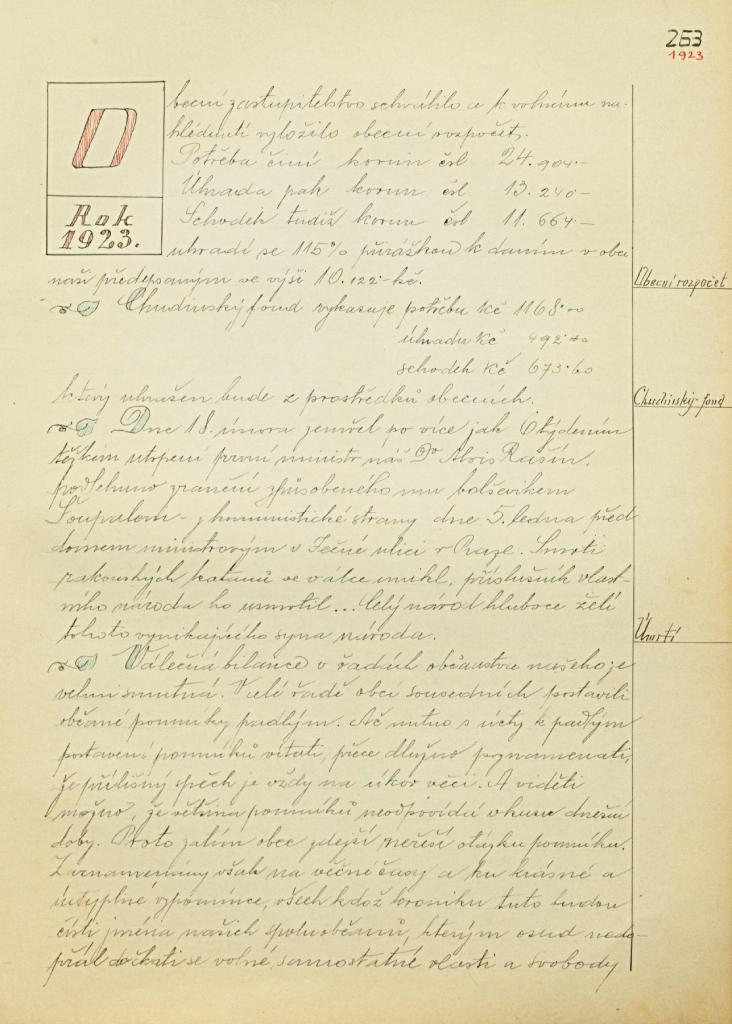 263
1923
O
Rok
1923.
becní zastupitelstvo schválilo a k volnému na-
hlédnutí vyložilo obecní rozpočet.
Potřeba činí korun čsl 24.904.—
Úhrada pak korun čsl 13.240—
Schodek tudíž korun čsl 11.664—
uhradí se 115% přirážkou k daním v obci
naší předepsaným ve výši 10.122–kč.
Obecní rozpočet
Chudinský fond vykazuje potřebu kč 1168·
úhradu kč 492·40
schodek kč 673·60
který uhražen bude z prostředků obecních.
Chudinský fond
Dne 18. února zemřel po více jak 6týdením
těžkém utrpení první ministr náš Dr Alois Rašín,
podlehnuv zranění způsobeného mu bolševikem
Šoupalom – z komunistické strany dne 5. ledna před
domem ministrovým v Žitné ulici v Praze. Smrti
rakouských katanů ve válce unikl, příslušník vlast-
ního národa ho usmrtil... Celý národ hluboce želí
tohoto vynikajícího syna národa.
Úmrtí
Válečná bilance v řadách občanstva našeho je
velmi smutná. V celé řadě obcí sousedních postavili
občané pomníky padlým. Ač nutno s úcty k padlým
postavení pomníků vítati, přece dlužno poznamenati,
že přílišný spěch je vždy na úkor věci. A viděti
možno, že většina pomníků neodpovídá vkusu dnešní
doby. Proto zatím obec zdejší neřeší otázku pomníku.
Zaznamenány však na věčné časy a ku krásné a
vzpomínce, všech kdož kroniku tuto budou
čísti jména našich spoluobčanů, kterým osud nedo-
přál dočkati se volné, samostatné vlasti a svobody